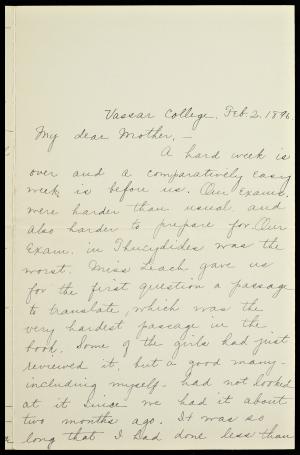 Vassar College, Feb. 2, 1896.
My dear Mother, —
A hard week is
over and a comparatively easy
week is before us. Our Exams.
were harder than usual and
also harder to prepare for. Our
Exam. in Thucydides was the
worst. Miss Leach gave us
for the first question a passage
to translate, which was the
very hardest passage in the
book. Some of the girls had just
reviewed it, but a good many -
including myself - had not looked
at it since we had it about
two months ago. It was so
long that I had done less than